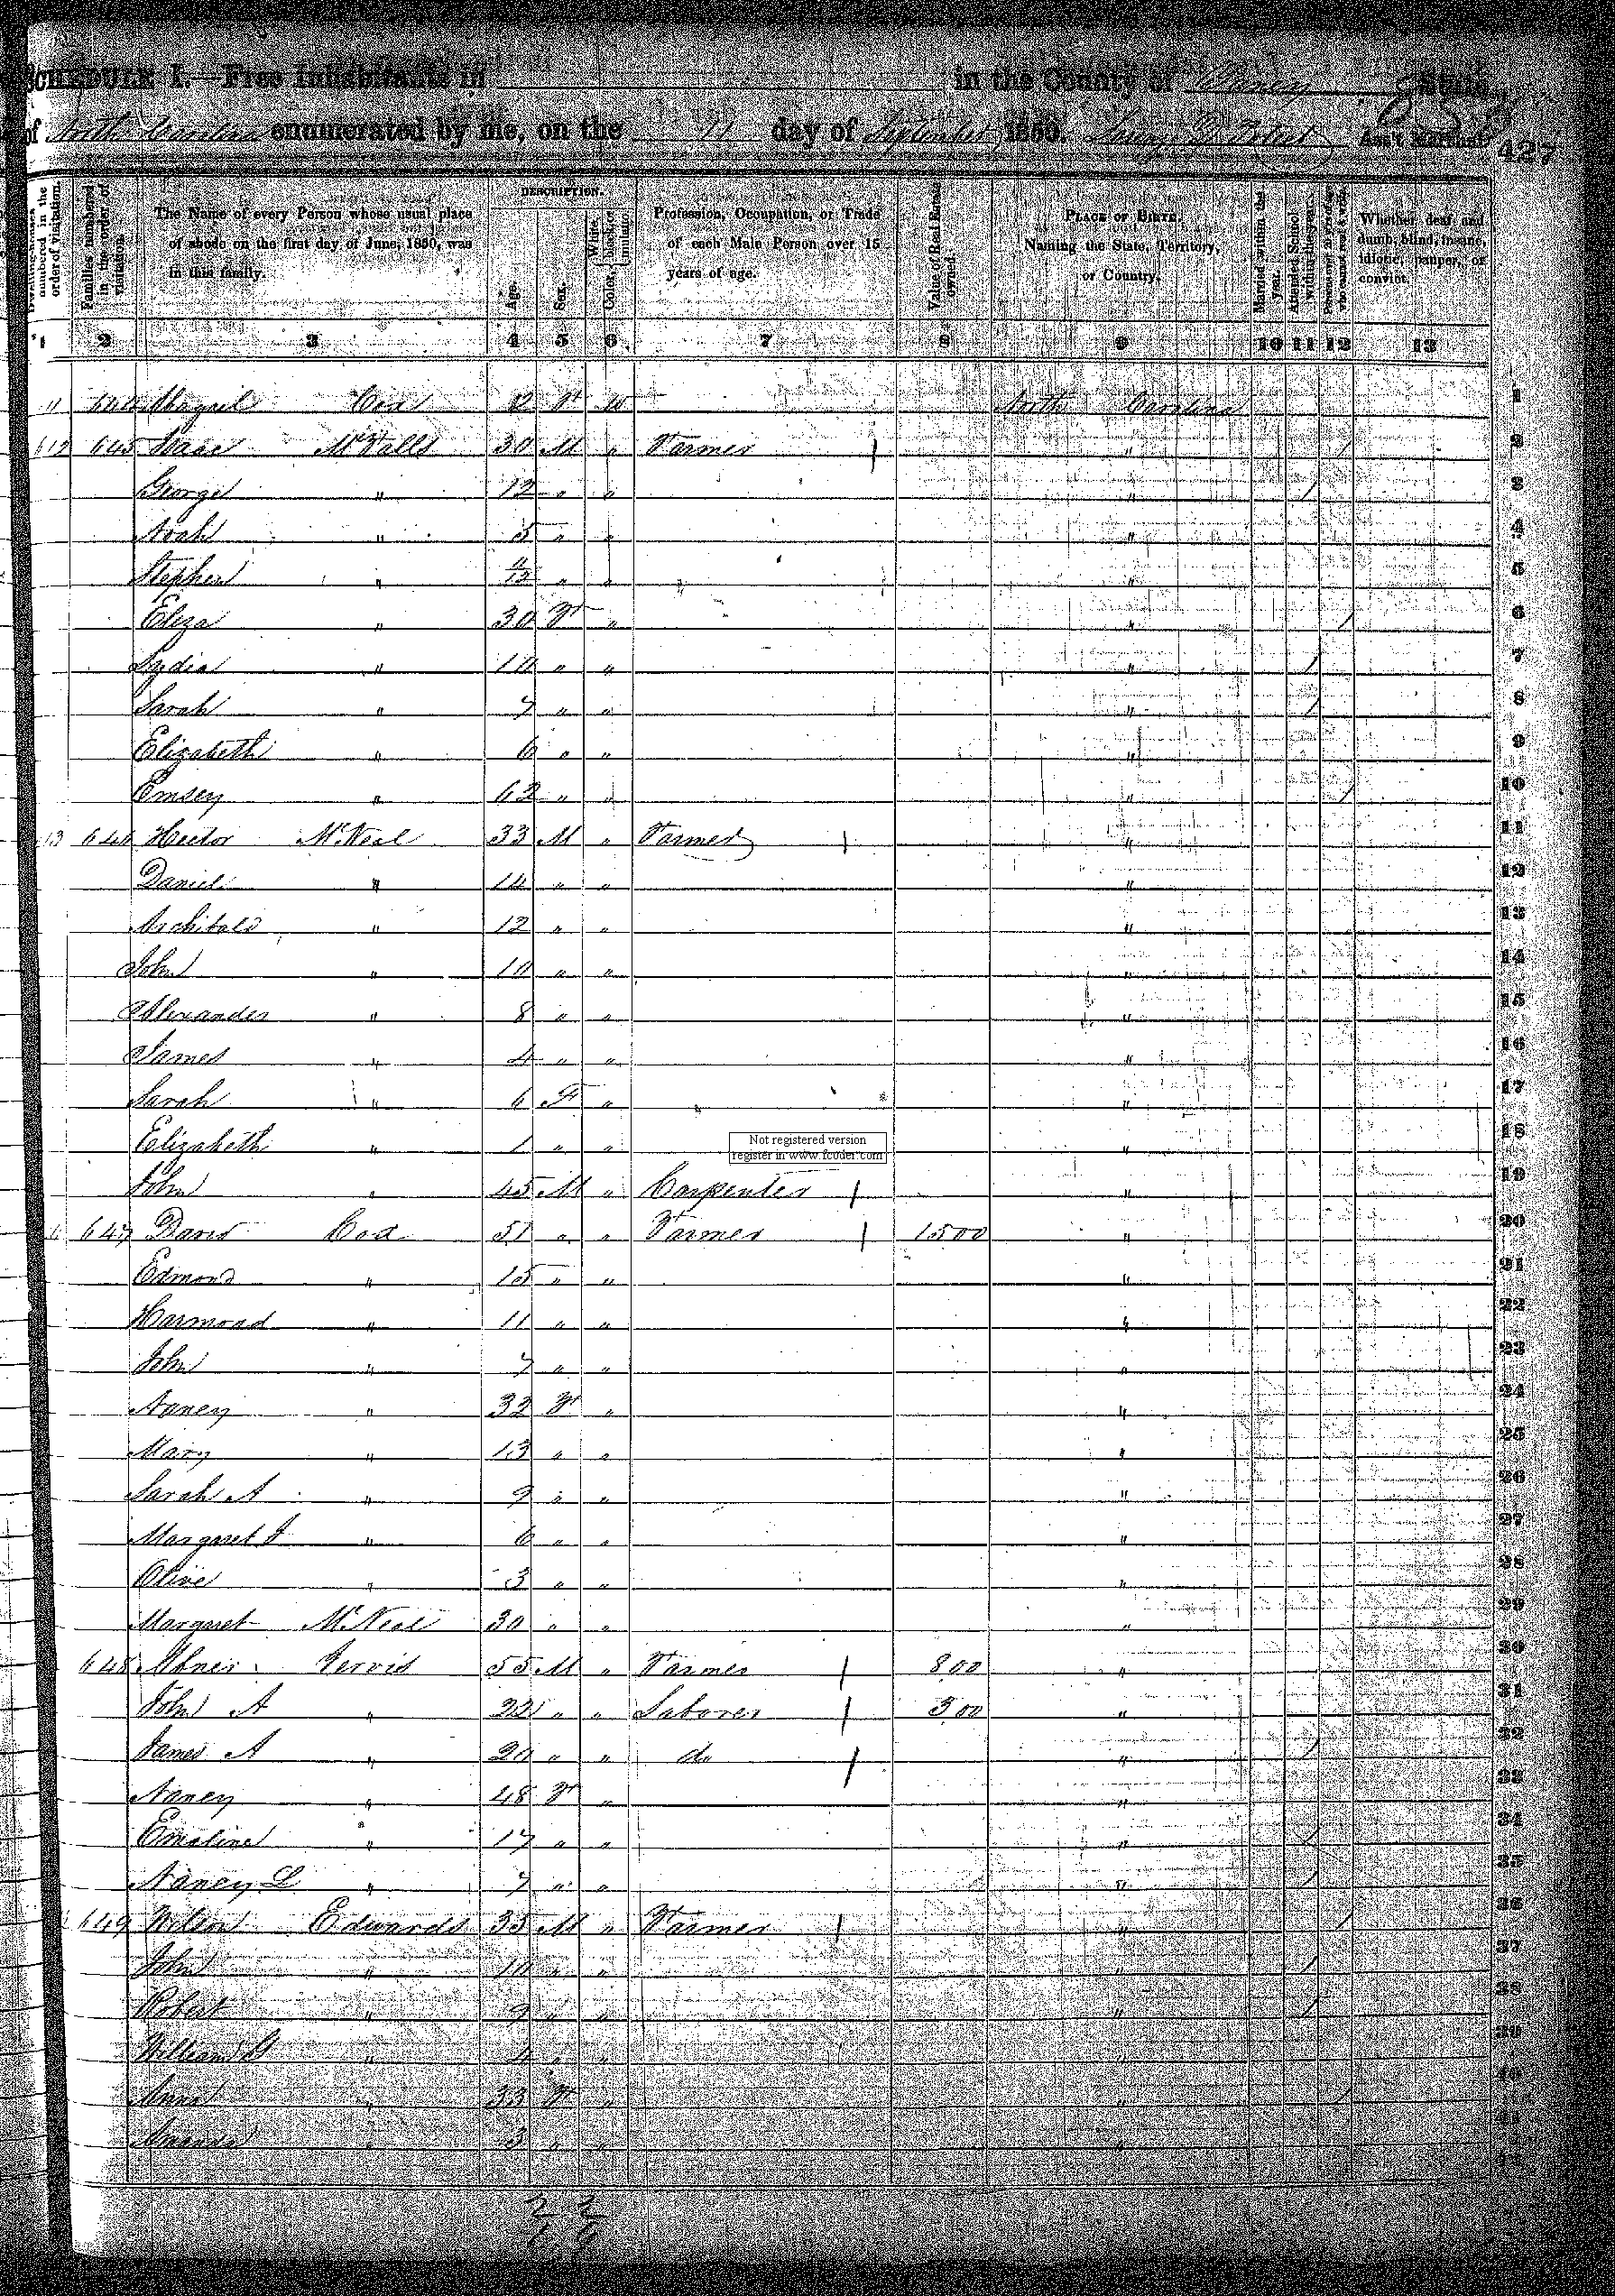 SCHEDULE I.—Free Inhabitants in in the County of Yancy State
of North Carolina enumerated by me, on the 11 day of September 1850. Ass't Marshal
427
Dwelling-houses numbered in the order of visitation.
Families numbered in the order of visitation.
The Name of every Person whose usual place of abode on the first day of June, 1850, was in this family.
DESCRIPTION.
Age.
Sex.
Color, White, black, or mulatto.
Profession, Occupation, or Trade of each Male Person over 15 years of age.
Value of Real Estate owned.
PLACE OF BIRTH. Naming the State, Territory, or Country.
Married within the year.
Attended School within the year.
Persons over 20 y'rs of age who cannot read & write.
Whether deaf and dumb, blind, insane, idiotic, pauper, or convict.
1 2 3 4 5 6 7 8 9 10 11 12 13
Cox 12 F W North Carolina 1
612 645 Isaac McFalls 30 M " Farmer " / 2
George " 12 " " " / 3
Noah " 5 " " " 4
Stephen " " " " 5
Eliza " 30 F " " / 6
Lydia " 10 " " " / 7
Sarah " 7 " " " / 8
Elizabeth " 6 " " " 9
Emsey " 62 " " " / 10
13 646 Hector McNeal 33 M " Farmer " 11
Daniel " 14 " " " 12
Archibald " 12 " " " 13
John " 10 " " " 14
Alexander " 8 " " " 15
James " 4 " " " 16
Sarah " 6 F " " 17
Elizabeth " 1 " " " 18
Not registered version
register in www.fcoder.com
John " 45 M " Carpenter " 19
647 David Cox 51 " " Farmer 1500 " 20
Edmond " 15 " " " 21
Harmond " 11 " " " 22
John " 7 " " " 23
Nancy " 32 F " " 24
Mary " 13 " " " 25
Sarah A " 9 " " " 26
Margaret J " 6 " " " 27
Olive " 3 " " " 28
Margaret McNeal 30 " " " 29
648 Abner Jervis 55 M " Farmer 800 " 30
John A " 22 " " Laborer 300 " 31
James A " 20 " " do " / 32
Nancy " 48 F " " 33
Emaline " 17 " " " / 34
Nancy L " 7 " " " / 35
649 Wilson Edwards 35 M " Farmer " / 36
John " 10 " " " / 37
Robert " 9 " " " / 38
William " 4 " " " 39
Anna " 33 F " " / 40
" 3 " " " 41
42